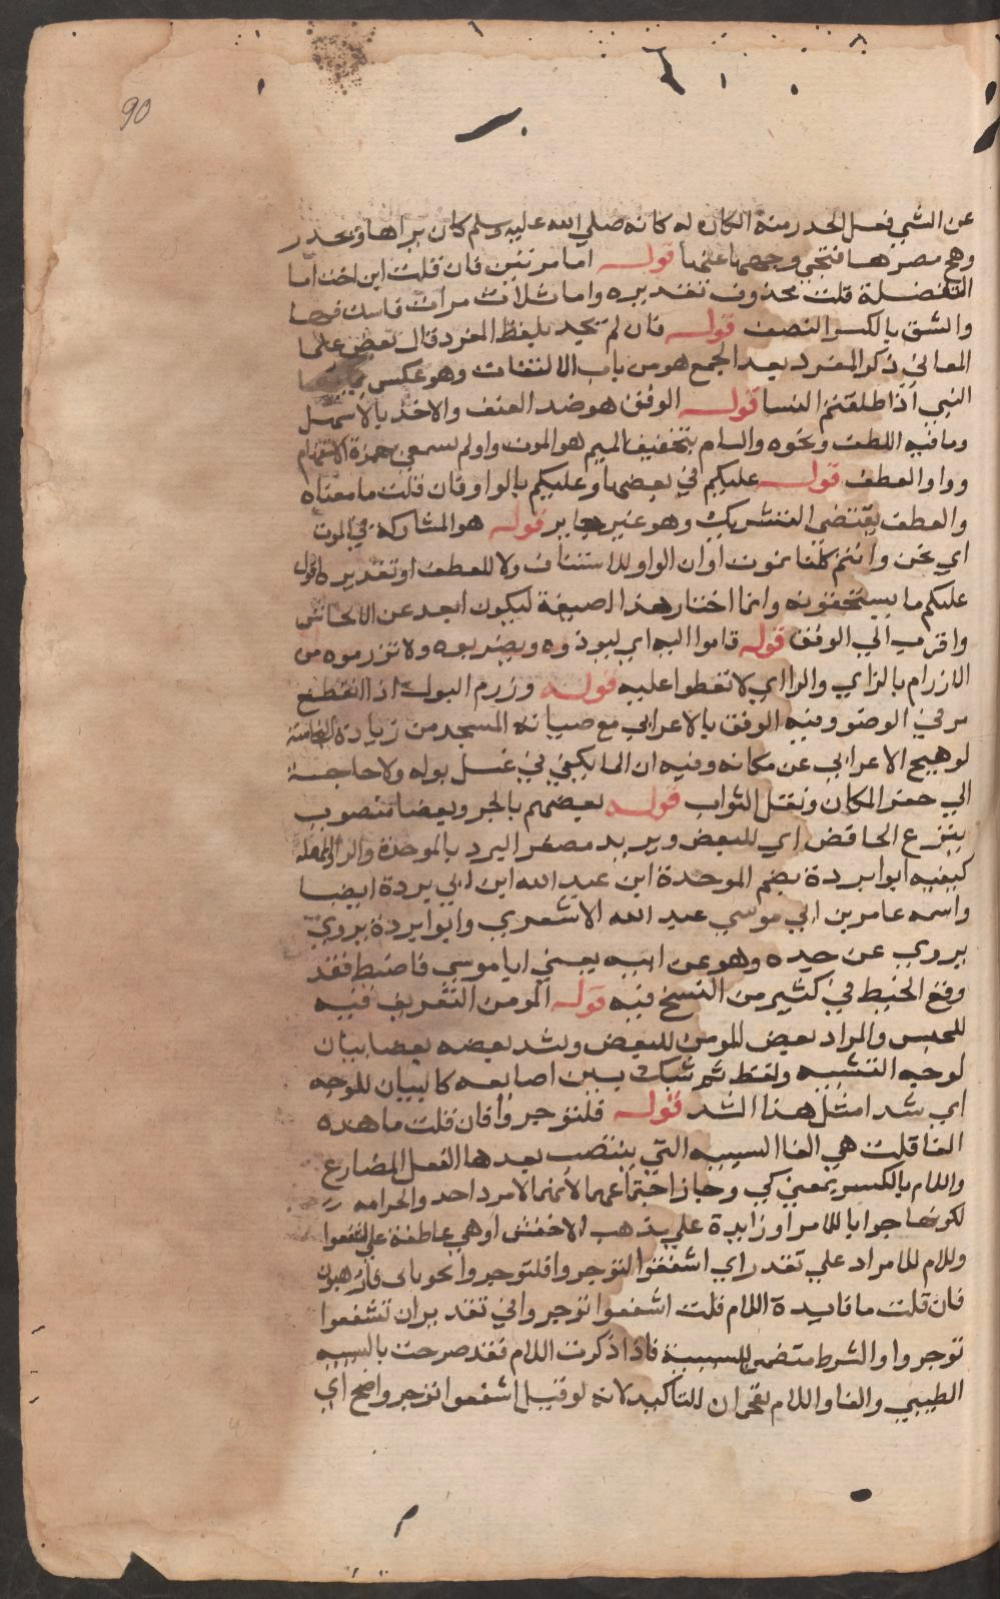 90
عن الشي فعل الحذر منه الكاره له كانه صلي الله عليه وسلم كان يراها ويحذر
وهج مصرها فنحي وجهه عنها قوله اما مرتين فان قلت اين اخت اما
التفضلة قلت محذوف تقديره واما ثلاث مرات فاسك فها
والشق بالكسر النصف قوله فان لم يجد بلفظ المفرد قال بعض علما
المعاني ذكر المفرد بعد الجمع هو من باب الالتفات وهو عكس
النبي اذا طلقتم النسا قوله الوفق هو ضد العنف والاخذ بالاسهل
وما فيه اللطف ونحوه والسام بتخفيف الميم هو الموت واولم تسمعي بهمزة الاستفهام
وواو العطف قوله عليكم في بعضها وعليكم بالواو فان قلت ما معناه
والعطف يقتضي التشريك وهو غير جايز قوله هو المشاركة في الموت
اي نحن وانتم كلنا نموت او ان الواو للاستئناف ولا للعطف او تقديره اقول
عليكم ما يستحقونه وانما اختار هذا الصيغة ليكون ابعد عن الالحاش
واقرب الي الوفق قوله قاموا اليه اي ليوذوه ويضربوه ولا تزرموه من
الازرام بالزاي والرا اي لا تقطوا عليه قوله وزرم البول اذا انقطع
مر في الوضو وفيه الوفق بالاعرابي مع صيانة المسجد من زيادة النجاسة
لو هيج الاعرابي عن مكانه وفيه ان الما يكفي في غسل بوله ولا حاجة
الي حفر المكان ونقل التراب قوله بعضهم بالجر وبعضا منصوب
بنزع الخافض اي للبعض وبريد مصغر البرد بالموحدة والرا والمهملة
كيفيه ابوا بردة بضم الموحدة ابن عبد الله ابن ابي بردة ايضا
واسمه عامر بن ابي موسي عبد الله الاشعري وابوا بردة يروي
يروي عن جده وهو عن ابيه يعني ابا موسي فاضبط فقد
وقع الخبط في كثير من النسخ فيه قوله المومن التعريف فيه
للجنس والمراد بعض المومن للبعض ويشد بعضه بعضا بيان
لوجه التشبيه ولفظ ثم شبك بين اصابعه كالبيان للوجه
اي شد امثل هذا الشد قوله فلتوجروا فان قلت ما هذه
الفا قلت هي الفا السببيه التي ينتصب بعدها الفعل المضارع
واللام بالكسر بمعني كي وجاز اجتماعهما لانهما لامر واحد والجرامه
لكونها جوابا للامر او زايدة علي مذهب الاخفش او هي عاطفة علي اشفعوا
وللام للامر اد علي تقدر اي اشفعوا لتوجروا فلتوجروا نحو باى فارهبون
فان قلت ما فايدة اللام قلت اشفعوا توجروا في تقدير ان تشفعوا
توجروا والشرط متضمن للسببية فاذا ذكرت اللام فقد صرحت بالسببية
الطيبي والفا واللام يقحمان للتاكيد لانه لو قيل اشفعوا توجروا صح اي